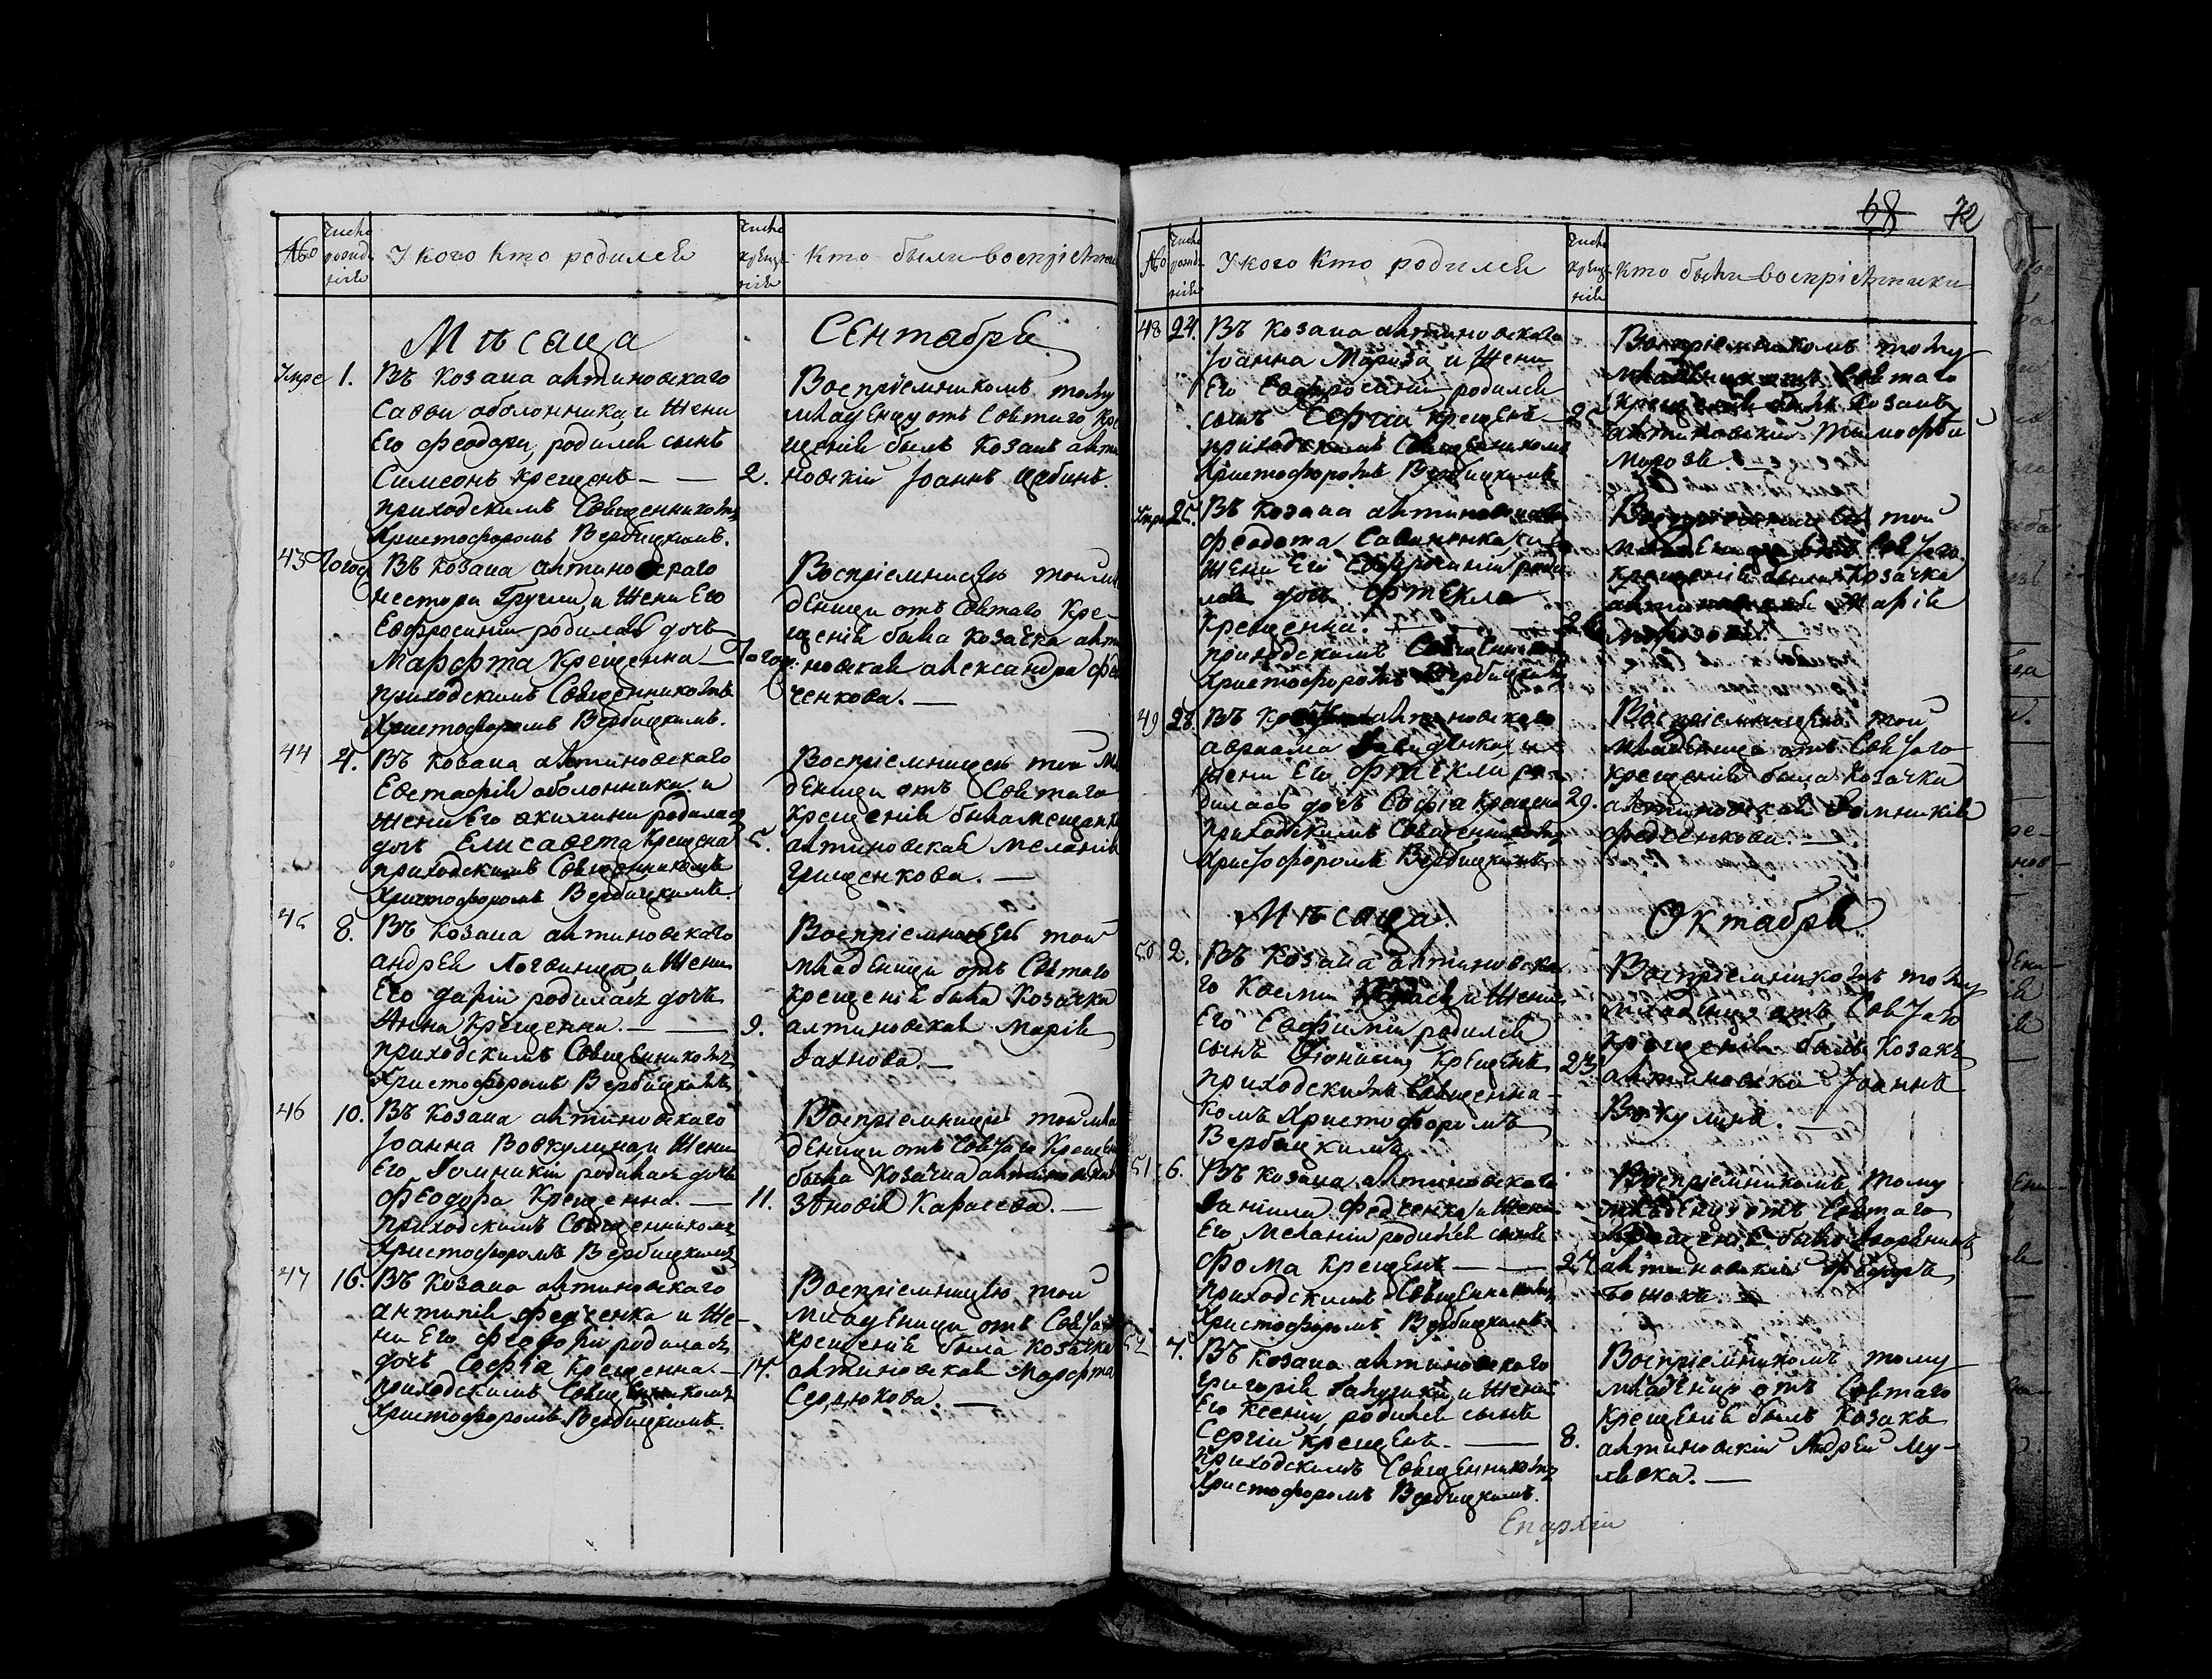 68 72
№ Число рожде нія У кого кто родился Число креще нія Кто были воспріємни
Мѣсяца Сентября
Умре 1. Въ Козака алтиновскаго
Саввы оболонника, и жени
Его Феодоры, родился сынъ
Симеонъ крещенъ — — 2.
приходскимъ Священникомъ
Христофоромъ Вербицкимъ.
Воспріемникомъ тому
младенцу отъ Святаго Кре
щенія былъ Козакъ алти
новскій Іоаннъ Щебинъ.
43 Того Въ Козака алтиновскаго
Нестора и жени Его
Евфросиніи родилась дочь
Марфта Крещенна — Того
приходскимъ Священникомъ
Христофоромъ Вербицкимъ.
Воспріемницею той мла
деници отъ Святаго Кре-
щенія была Козачка алти
новская александра Фед
ченкова. —
44 4. Въ Козака алтиновскаго
Евстафія оболонника и
жени Его акилини родилась
дочь Елисавета Крещена 5.
приходскимъ Священникомъ
Христофоромъ Вербицкимъ.
Воспріемницею той Мла
деници отъ Святаго
Крещенія была мещанка
алтиновская Меланія
Грищенкова. —
45 8. Въ Козака алтиновскаго
андрея Логвинца, и жени
Его дарїи родилась дочь
Анна Крещенна. — — 9.
приходскимъ Священникомъ
Христофоромъ Вербицкимъ
Воспріемницею той
младеници отъ Святаго
Крещенія была Козачка
алтиновская Марія
Захнова. —
46 10. Въ Козака алтиновскаго
Іоанна Вовкулина, и жени
Его Домникіи родилась дочь
Феодора Крещенна. — 11.
приходскимъ Священникомъ
Христофоромъ Вербицкимъ
Воспріемницею той мла
деници отъ Святаго Крещен
была Козачка алтиновская
Зѣновія Карасева. —
47 16. Въ Козака алтиновскаго
антипія Федченка и Же-
ни Его Феодоры родилась
дочь Софія Крещенна. — 17.
приходскимъ Священникомъ
Христофоромъ Вербицкимъ.
Воспріемницею той
младеници отъ Святаго
крещенія была Козачка
алтиновская Марфта
Сердюкова. —
№ Число рожде нія У кого кто родился Число креще нія Кто были воспріємники
48 24. Въ Козака алтиновскаго
Іоанна Мороза, и Жени
Его Евфросиніи родился
сынъ Сергій крещенъ 25
приходскимъ Священникомъ
Христофоромъ Вербицкимъ
Воспріемникомъ тому
младенцу отъ Святаго
крещенія былъ Козакъ
алтиновскій Тимофѣй
Морозъ. —
Умре 25. Въ Козака алтиновскаго
Феодота Савиненка, и
Жени Его Евфросиніи роди
лась дочь Фтекла
Крещенна. — — 26
приходскимъ Священникомъ
Христофоромъ Вербицкимъ
Воспріемницею той
младеници отъ Святаго
крещенія была Козачка
алтиновская Марія
Морозова. —
49 28. Въ Козака алтиновскаго
авраама Давиденка, и
жени Его Фтекли ро
дилась дочь Софія Крещена 29.
приходскимъ Священникомъ
Христофоромъ Вербицкимъ
Воспріемницею той
младеници отъ Святаго
крещенія была Козачка
алтиновская Домникія
Федченкова. —
Мѣсяца Октября
50 2. Въ Козака алтиновска
го Космы и Жени
Его Евфиміи родился
сынъ Діонисій Крещенъ 23
приходскимъ Священни-
комъ Христофоромъ
Вербицкимъ
Воспріемникомъ тому
младенцу отъ Святаго
Крещенія былъ Козакъ
алтиновскій Іоаннъ
Вовкулинъ. —
51 6. Въ Козака алтиновскаго
Даніила Федченка, и Жени
Его Меланіи родился сынъ
Фома Крещенъ — — 27
приходскимъ Священникомъ
Христофоромъ Вербицкимъ.
Воспріемникомъ тому
младенцу отъ Святаго
Крещенія былъ дворянинъ
алтиновскій Федоръ
Божокъ. —
52 7. Въ Козака алтиновскаго
Григорія и Жени
Его Ксеніи, родился сынъ
Сергій крещенъ. — 8.
приходскимъ Священникомъ
Христофоромъ Вербицкимъ.
Воспріемникомъ тому
младенцу отъ Святаго
Крещенія былъ Козакъ
алтиновскій Андрей Му-
лявка. —
Епархіи